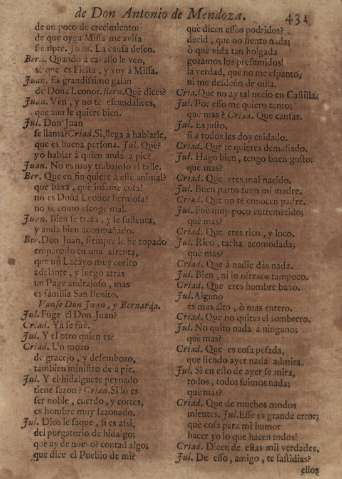 de Don Antonio de Mendoza. 431
de un poco de crecimiento
de que oyga Missa me avisa
siempre. Juan. La causa deseo.
Ber. Quando à cavallo le ven,
si, que es Fiesta, y voy à Missa.
Juan. Es grandissimo galàn
de Doña Leonor. Bern. Què dices?
Juan. Ven, y no te escandalices,
que aun le quiere bien.
Jul. Don Juan
se llama? Criad. Si, llega à hablarle,
que es buena persona. Jul. Què?
yo hablar à quien anda à pie?
Juan. No es muy trabajoso el talle.
Ber. Que en fin quiere à esse animal?
que baxa, que infame cosa!
no es Doña Leonor hermosa?
no se como escoge mal.
Juan. Bien se trata, y se sustenta,
y anda bien acompañado.
Ber. Don Juan, siempre le he topado
que un Lacayo muy corito
adelante, y luego atràs
un Page andrajoso, mas
es familia San Benito.
Vanse Don Juan, y Bernarda.
Jul. Fuese el Don Juan?
Criad. Ya se fuè.
Jul. Y el otro quien es?
Criad. Un mozo
de gracejo, y desembozo,
tambien ministro de à pie.
Jul. Y el hidalguete preñado
tiene sazon? Criad. Si lo es
ser noble, cuerdo, y cortès,
es hombre muy sazonado.
Jul. Dios le saque, si es assi,
del purgatorio de hidalgo:
que ay de nuevo? contad algo:
que dice el Pueblo de mi?
que dicen essos podridos?
decid, que no siento nada;
ò què vida tan holgada
gozamos los presumidos!
la verdad, que no me espanto,
ni me desdeño de oilla.
Criad. Que no ay tal necio en Castilla.
Jul. Por esso me quiero tanto;
que mas? Criad. Que cantas.
Jul. Es justo,
si à todos les doy enfado.
Criad. Que te quieres demasiado.
Jul. Hago bien, tengo buen gusto:
que mas?
Criad. Que eres mal nacido.
Jul. Buen parto tuvo mi madre.
Criad. Que no te conocen padre.
Jul. Fue muy poco entremetido:
què mas?
Criad. Que eres rico, y loco.
Jul. Rico, tacha acomodada;
què mas?
Criad. Que à nadie dàs nada.
Jul. Bien, ni lo nieguen tampoco.
Criad. Que eres hombre baxo.
Jul. Alguno
es mas alto, ò mas entero.
Criad. Que no quitas el sombrero.
Jul. No quito nada à ninguno:
què mas?
Criad. Que es cosa pesada,
que siendo ayer nada admira.
Jul. Si en esso de ayer se mira,
todos, todos fuimos nada:
què mas?
Criad. Que de muchos modos
mientes. Jul. Esse es grande error;
que cosa para mi humor
hacer yo lo que hacen todos!
Criad. Dicen de estas mil verdades.
Jul. De esso, amigo, te fastidias?
ellos